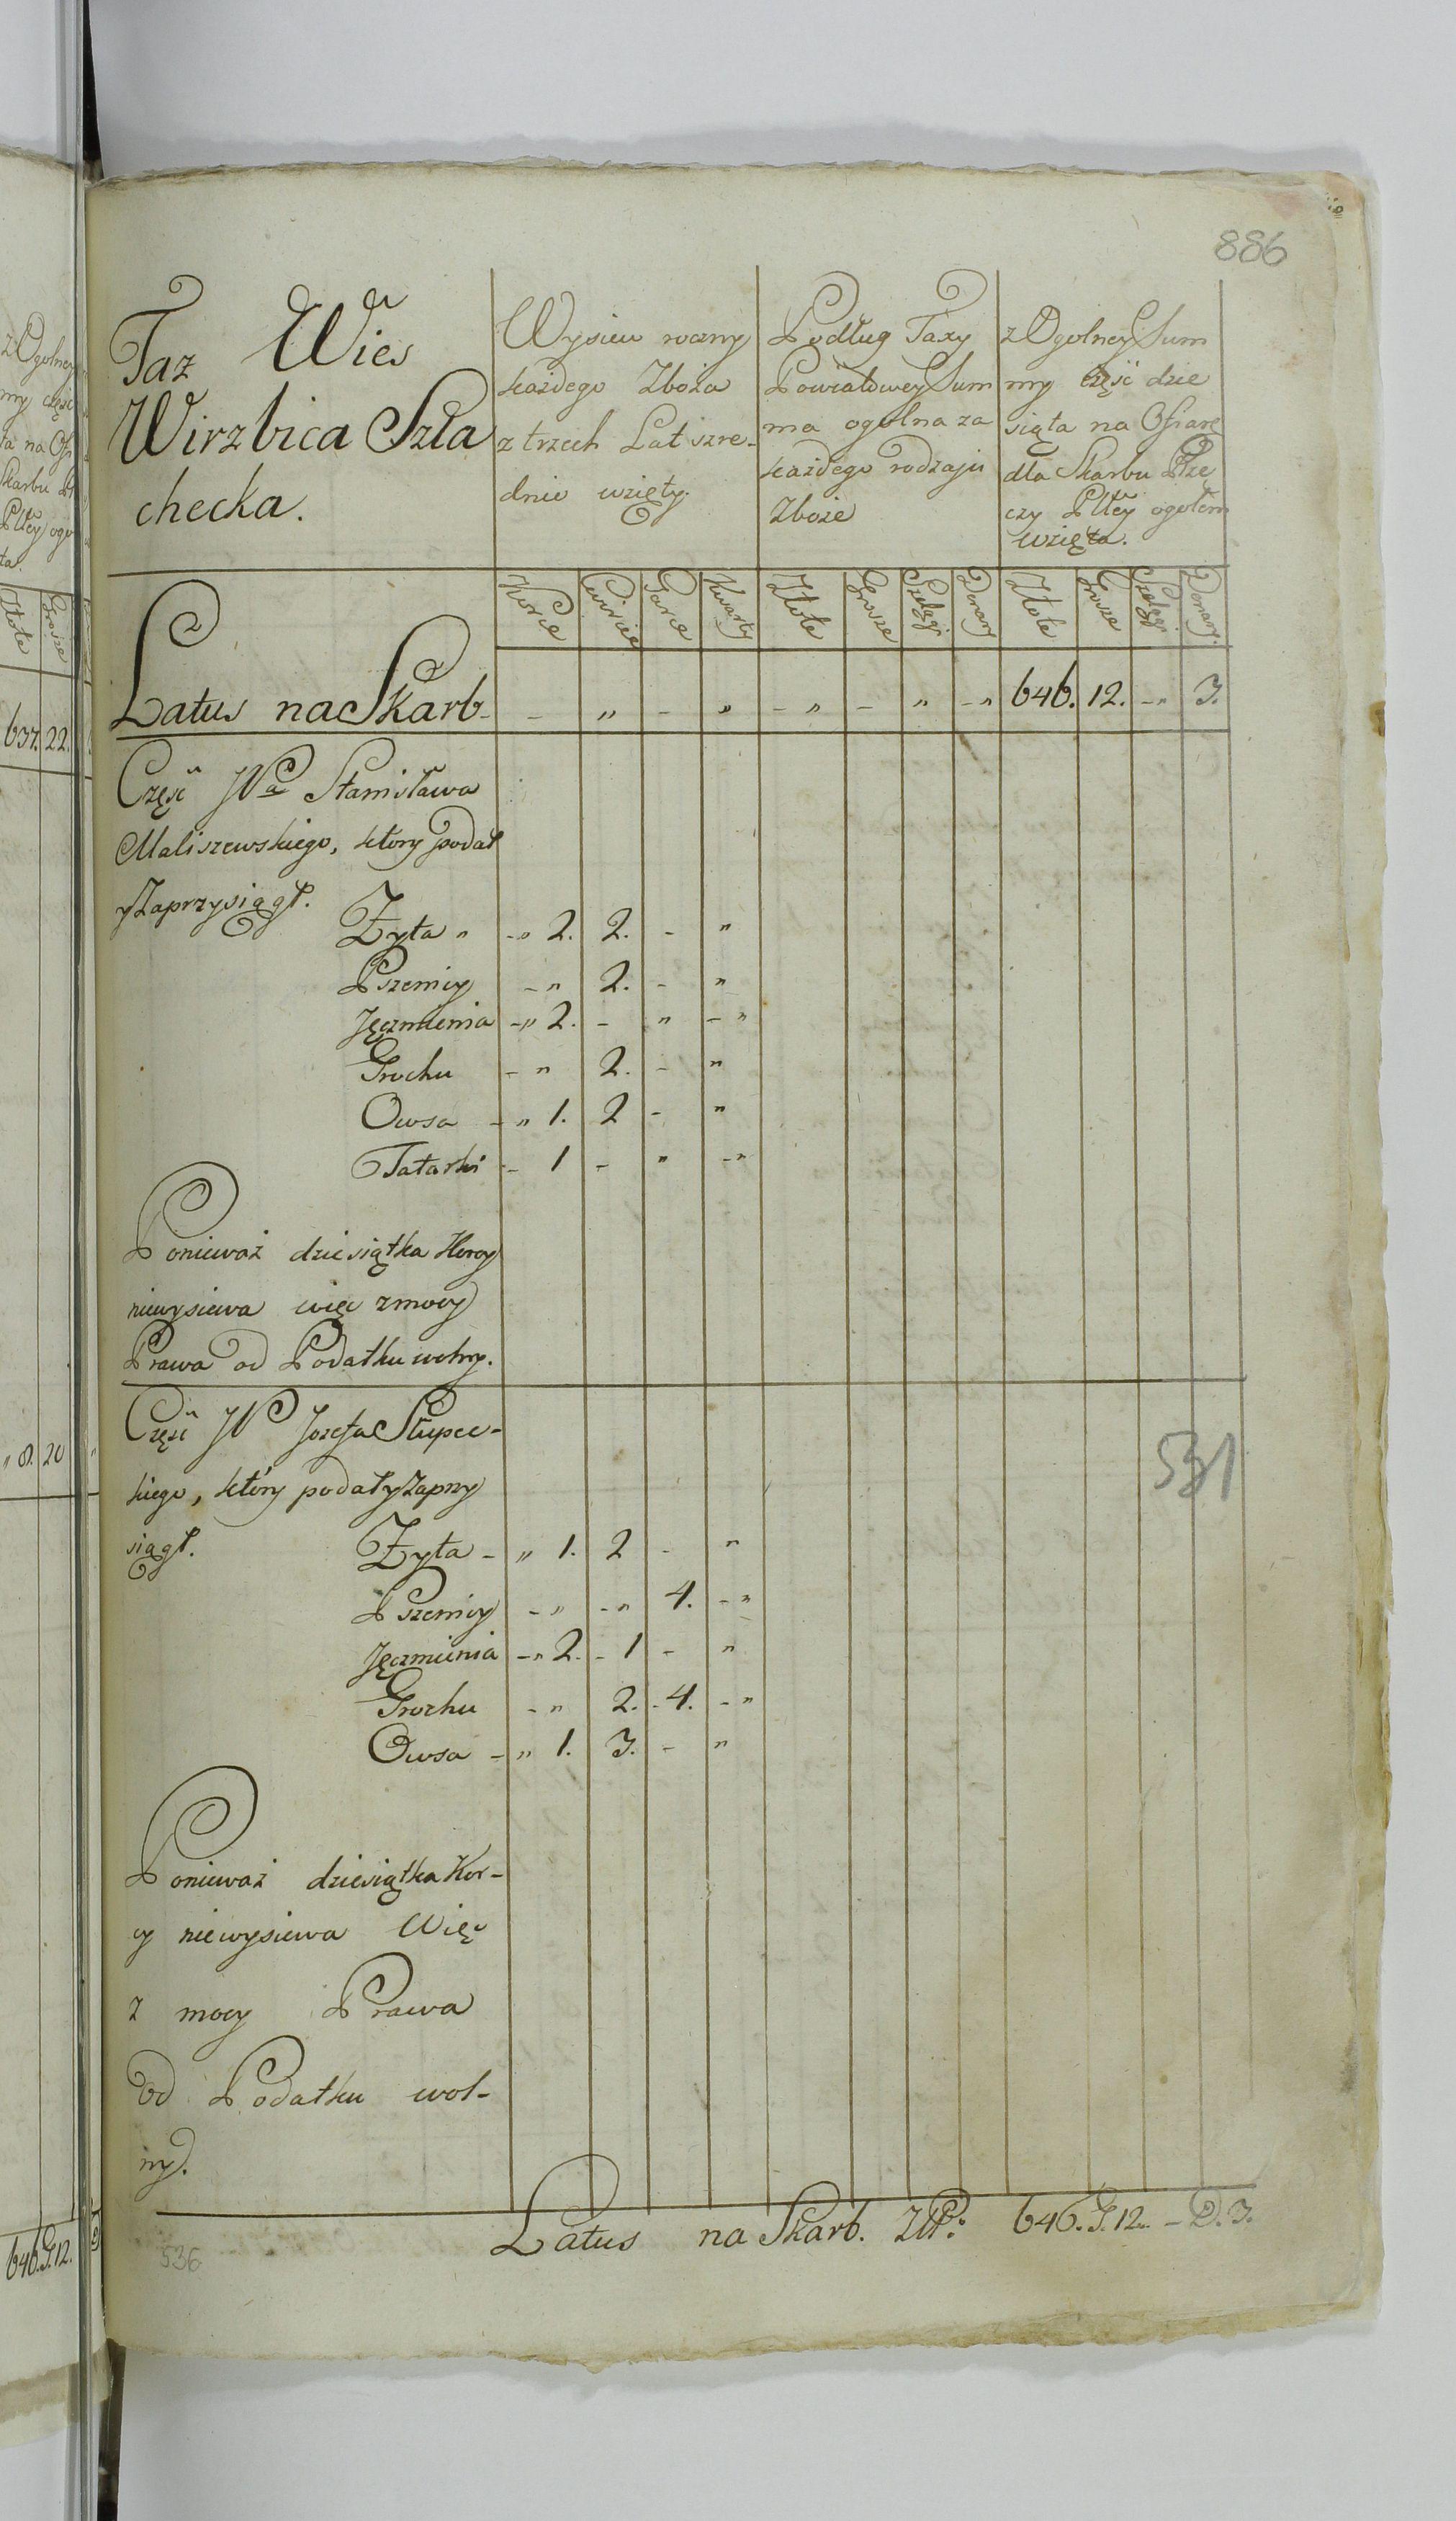 886
Taz Wies
Wirzbica Szla
checka.
Wysiew roczny
kazdego Zboza
z trzech Lat szre-
dnie wzięty.
Podług Taxy
Powiatowey Sum
ma ogolna za
kazdego rodzaju
Zboże
z Ogolney Sum
my częśc dzie
siąta na Ofiarę
dla Skarbu Rze
czy Pltey ogołem
wzięta.
Korce Cwircie Garce Kwarty Złote Grosze Szelągi Denary Złote Grosze Szelągi Denary.
Latus na Skarb - - " - " - " - " - " 646. 12. - " 3.
Częsc JPa Stanisława
Maliszewskiego, ktory podał
y Zaprzysiągł.
Zyta " - " 2. 2. - "
Pszenicy - " 2. - "
Jęczmienia - " 2. - " - "
Grochu - " 2. - "
Owsa - " 1. 2 - "
Tatarki - 1 - " - "
Ponieważ dziesiątka Korcy
niewysiewa więc z mocy
Prawa od Podatku wolny.
Częsc JP Jozefa Słupec-
kiego, który podał y Zaprzy
siągł.
Zyta - " 1. 2 - "
Pszenicy - " - " 4. - "
Jęczmienia - " 2. - 1 - "
Grochu - " 2. - 4. - "
Owsa - " 1. 3. - "
531
Ponieważ dziesiątka Kor-
cy niewysiewa Więc
z mocy Prawa
od Podatku wol-
ny.
Latus na Skarb. ZłP: 646. G. 12. - D. 3.
536